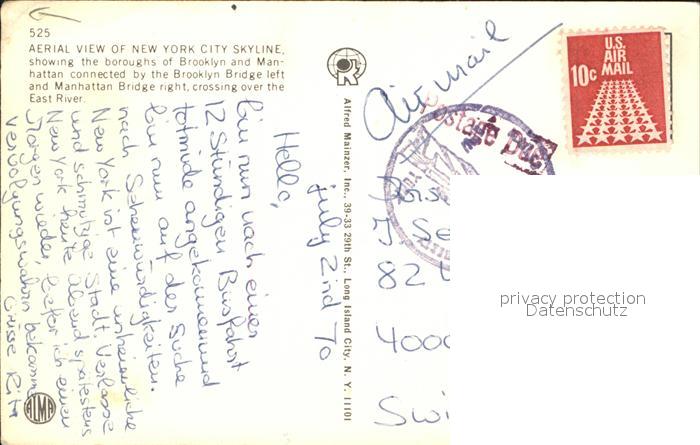 525
AERIAL VIEW OF NEW YORK CITY SKYLINE,
showing the boroughs of Brooklyn and Man-
hattan connected by the Brooklyn Bridge left
and Manhattan Bridge right, crossing over the
East River.
Alfred Mainzer, Inc., 39-33 29th St., Long Island City, N. Y. 11101
ALMA
july 2nd 70
Hello,
bin nun nach einer
12 Stündigen Busfahrt
totmüde angekommen und
bin nun auf der Suche
nach Sehenwürdigkeiten.
New York ist eine unheimliche
und schmutzige Stadt. Verlasse
New York heute Abend spätestens
Morgen wieder, bevor ich einen
Verfolgungswahn bekomme
Grüsse Rita
Air mail
U.S.
AIR
MAIL
10c
Postage Due
J. Se
82
4000
Swi
privacy protection
Datenschutz